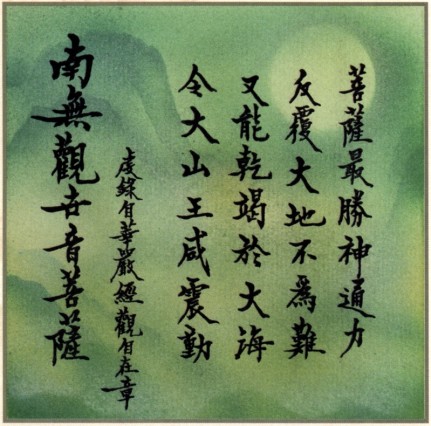 菩薩最勝神通力
反覆大地不為難
又能乾竭於大海
令大山王咸震動
虔錄自華嚴經觀自在章
南無觀世音菩薩